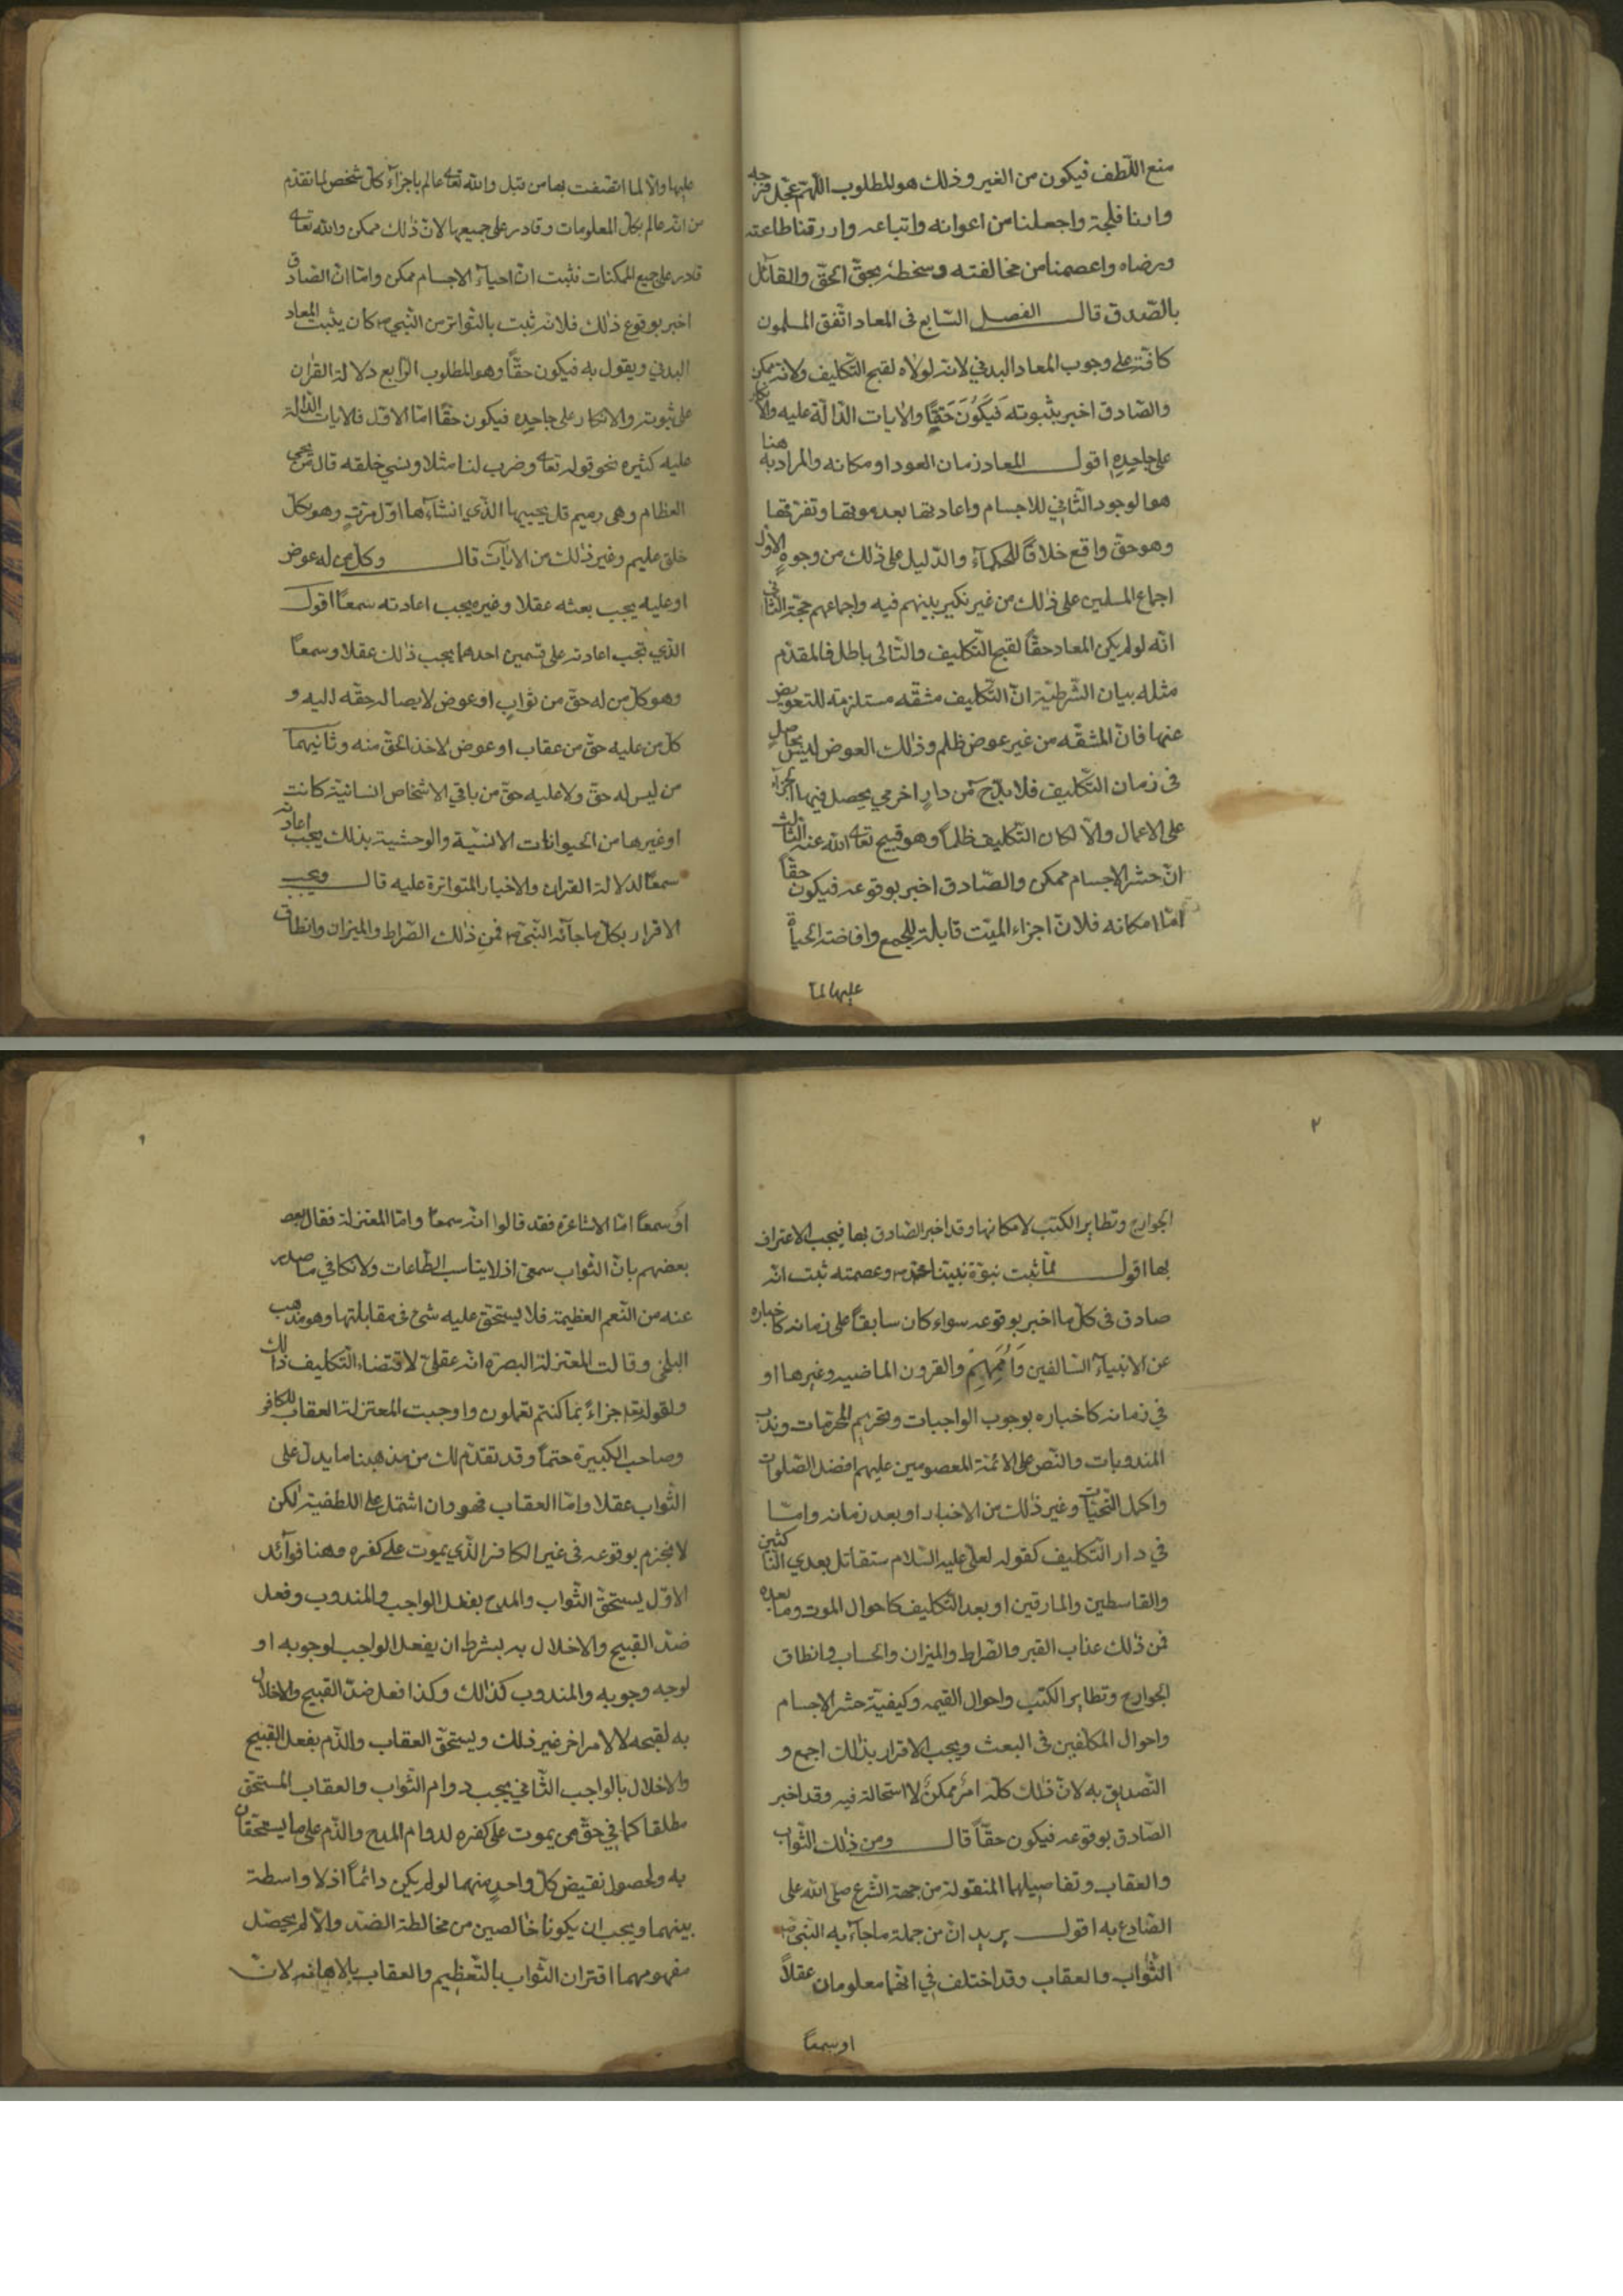 منع اللّطف فيكون من الغير وذلك هو المطلوب اللّهمّ عجّل فرجه
وارنا فلجه واجعلنا من اعوانه واتباعه وارزقنا طاعته
ورضاه واعصمنا من مخالفته وسخطه بحقّ الحقّ والقائل
بالصّدق قال الفصل السّابع فى المعاد اتّفق المسلمون
كافّة على وجوب المعاد البدني لانّه لولاه لقبح التّكليف ولانّه ممكن
والصّادق اخبر بثبوته فَيَكُونَ حَقًّا والايات الدّالّة عليه والانكار
على جاحِدِهِ اقول المعاد زمان العود او مكانه والمراد به هنا
هو الوجود الثّاني للاجسام واعادتها بعد موتها وتفرّقها
وهو حقّ واقع خلافًا للحكمآء والدّليل على ذلك من وجوهٍ الاوّل
اجماع المسلمين على ذلك من غير نكير بينهم فيه واجماعهم حجّة الثّانى
انّه لو لم يكن المعاد حقًّا لقبح التّكليف والتّالى باطل فالمقدّم
مثله بيان الشّرطيّة انّ التّكليف مشقّه مستلزمة للتعويض
عنها فانّ المشقّه من غير عوض ظلم وذلك العوض ليس بحاصلٍ
فى زمان التّكليف فلا بدّ ح من دارٍ اخرى يحصل فيها الجزآء
على الاعمال والّا لكان التّكليف ظلمًا وهو قبيح تعالى الله عنه الثّالث
انّ حشر الاجسام ممكن والصّادق اخبر بوقوعه فيكون حقًّا
امّا امكانه فلانّ اجزاء الميّت قابلة للجمع وافاضة الحياة
عليها لمآ
عليها والّا لما اتصفت بها من قبل والله تعالى عالم باجزاء كلّ شخص لما تقدّم
من انّه عالم بكلّ المعلومات وقادر على جميعها لانّ ذلك ممكن والله تعالى
قادر على جميع الممكنات فثبت انّ احياء الاجسام ممكن وامّا انّ الصّادق
اخبر بوقوع ذلك فلانّه ثبت بالتّواتر من النّبي ص كان يثبت المعاد
البدني ويقول به فيكون حقًّا وهو المطلوب الرّابع دلالة القرآن
على ثبوته والانكار على جاحده فيكون حقًّا امّا الاوّل فالايات الدّالة
عليه كثيره نحو قوله تعالى وضرب لنا مثلا ونسي خلقه قال من يحي
العظام وهى رميم قل يحييها الذّي انشأها اوّل مرّةٍ وهو بكلّ
خلق عليم وغير ذلك من الايات قال وكلّ من له عوض
او عليه يجب بعثه عقلا وغيره يجب اعادته سمعًا اقول
الذّي تجب اعادته على قسمين احدهما يجب ذلك عقلا وسمعًا
وهو كلّ من له حقّ من ثوابٍ او عوض لايصال حقّه اليه و
كلّ من عليه حقّ من عقاب او عوض لاخذ الحقّ منه وثانيهما
من ليس له حقّ ولا عليه حقّ من باقي الاشخاص انسانيّة كانت
او غيرها من الحيوانات الانسّية والوحشية بذلك يجب اعادته
سمعًا لدلالة القران والاخبار المتواترة عليه قال ويجب
الاقرار بكلّ ما جآء به النّبيّ ص فمن ذلك الصّراط والميزان وانطاق
٢
الجوارح وتطاير الكتب لامكانها وقد اخبر الصّادق بها فيجب الاعتراف
بها اقول لمّا ثبت نبوّة نبيّنا محمّد ص وعصمته ثبت انّه
صادق فى كلّ ما اخبر بوقوعه سواء كان سابقًا على زمانه كاخباره
عن الانبياء السّالفين وَاُمَمِهِمْ والقرون الماضيه وغيرها او
في زمانه كاخباره بوجوب الواجبات وتحريم المحرّمات وندب
المندوبات والنّص على الائمّة المعصومين عليهم افضل الصّلوات
واكمل التّحيّات وغير ذلك من الاخبار او بعد زمانه وامّا
في دار التّكليف كقوله لعلى عليه السّلام ستقاتل بعدي النّاكثين
والقاسطين والمارقين او بعد التّكليف كاحوال الموت وما بعده
فمن ذلك عذاب القبر والصّراط والميزان والحساب وانطاق
الجوارح وتطاير الكتب واحوال القيمه وكيفيّة حشر الاجسام
واحوال المكلّفين فى البعث ويجب الاقرار بذلك اجمع و
التّصديق به لانّ ذلك كلّه امرٌ ممكنٌ لا استحالة فيه وقد اخبر
الصّادق بوقوعه فيكون حقًّا قال ومن ذلك الثّواب
والعقاب وتفاصيلهما المنقولة من جهة الشّرع صلّى الله على
الصّادع به اقول يريد انّ من جملة ما جآء به النّبيّ ص
الثّواب والعقاب وقد اختلف في انّهما معلومان عقلاً
او سمعًا
او سمعًا امّا الاشاعرة فقد قالوا انّه سمعًا وامّا المعتزلة فقال بعض
بعضهم بانّ الثّواب سمعى اذ لا يناسب الطّاعات ولا تكافي ما صدر
عنه من النّعم العظيمة فلا يستحقّ عليه شئ فى مقابلتها وهو مذهب
البلخى وقالت المعتزلة البصرة انّه عقلى لاقتضاء التّكليف ذلك
ولقوله تعالى جزاءً بما كنتم تعملون واوجبت المعتزلة العقاب للكافر
وصاحب الكبيرة حتمًا وقد تقدّم لك من مذهبنا ما يدلّ على
الثّواب عقلا وامّا العقاب فهو وان اشتمل على اللطفية لكن
لا نجزم بوقوعه فى غير الكافر الذّي يموت على كفره وهنا فوآئد
الاوّل يستحقّ الثّواب والمدح بفعل الواجب والمندوب وفعل
ضدّ القبيح والاخلال به بشرط ان يفعل الواجب لوجوبه او
لوجه وجوبه والمندوب كذلك وكذا فعل ضدّ القبيح والاخلال
به لقبحه لا لامر اخر غير ذلك ويستحقّ العقاب والذّم بفعل القبيح
والاخلال بالواجب الثّانى يجب دوام الثّواب والعقاب المستحقّ
مطلقا كما في حقّ من يموت على كفره لدوام المدح والذّم على ما يستحقّان
به ولحصول نقيض كلّ واحدٍ منهما لو لم يكن دائمًا اذ لا واسطة
بينهما ويجب ان يكونا خالصين من مخالطة الضّد والّا لم يحصل
مفهومهما اقتران الثّواب بالتّعظيم والعقاب بالاهانه لانّ